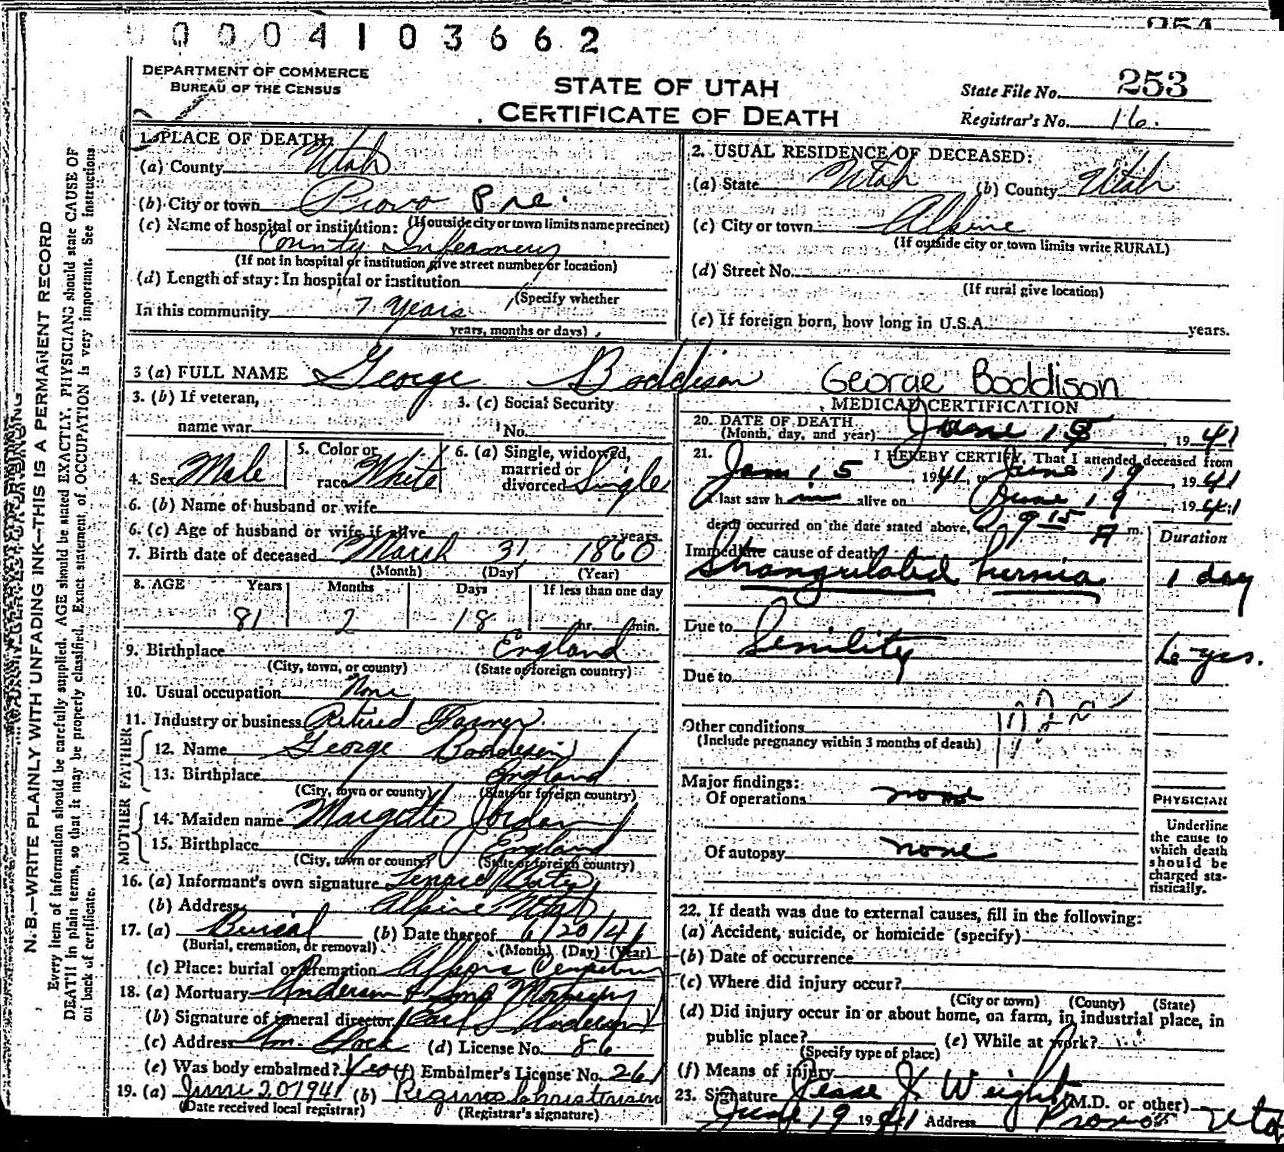 0 0 0 0 4 1 0 3 6 6 2
DEPARTMENT OF COMMERCE
BUREAU OF THE CENSUS
STATE OF UTAH
CERTIFICATE OF DEATH
State File No. 253
Registrar's No. 16.
1. PLACE OF DEATH:
(a) County Utah
(b) City or town Provo Pre.
(If outside city or town limits name precinct)
(c) Name of hospital or institution:
County Infirmary
(If not in hospital or institution give street number or location)
(d) Length of stay: In hospital or institution
(Specify whether
In this community 7 years
years, months or days)
2. USUAL RESIDENCE OF DECEASED:
(a) State Utah (b) County Utah
(c) City or town Alpine
(If outside city or town limits write RURAL)
(d) Street No.
(If rural give location)
(e) If foreign born, how long in U.S.A. years.
3 (a) FULL NAME George Boddison George Boddison
3. (b) If veteran,
name war
3. (c) Social Security
No.
4. Sex Male
5. Color or
race White
6. (a) Single, widowed,
married or
divorced Single
6. (b) Name of husband or wife
6. (c) Age of husband or wife if alive years
7. Birth date of deceased March 31 1860
(Month) (Day) (Year)
8. AGE Years Months Days If less than one day
81 2 18 hr. min.
9. Birthplace England
(City, town, or county) (State or foreign country)
10. Usual occupation None
11. Industry or business Retired Farmer
FATHER
12. Name George Boddison
13. Birthplace England
(City, town or county) (State or foreign country)
MOTHER
14. Maiden name Margette Jorden
15. Birthplace England
(City, town or county) (State or foreign country)
16. (a) Informant's own signature
(b) Address Alpine Utah
17. (a) Burial (b) Date thereof 6/20/41
(Burial, cremation, or removal) (Month) (Day) (Year)
(c) Place: burial or cremation
18. (a) Mortuary Anderson & Sons Mortuary
(b) Signature of funeral director Earl S Anderson
(c) Address Am. Fork (d) License No. 86
(e) Was body embalmed? Yes (f) Embalmer's License No. 261
19. (a) June 20 1941 (b) Christensen
(Date received local registrar) (Registrar's signature)
MEDICAL CERTIFICATION
20. DATE OF DEATH
(Month, day, and year) June 1 , 1941
21. I HEREBY CERTIFY, That I attended deceased from
Jan. 15 1941, to June 19 1941
I last saw h alive on June 19 , 1941
death occurred on the date stated above, 9 15 A m.
Duration
Immediate cause of death
Strangulated hernia 1 day
Due to Senility yrs.
Due to
Other conditions
(Include pregnancy within 3 months of death)
Major findings:
Of operations none
Of autopsy none
PHYSICIAN
Underline
the cause to
which death
should be
charged sta-
tistically.
22. If death was due to external causes, fill in the following:
(a) Accident, suicide, or homicide (specify)
(b) Date of occurrence
(c) Where did injury occur?
(City or town) (County) (State)
(d) Did injury occur in or about home, on farm, in industrial place, in
public place? (e) While at work?
(Specify type of place)
(f) Means of injury
23. Signature Jesse J Weight (M.D. or other)
June 19 1941 Address Provo Utah
N. B.—WRITE PLAINLY WITH UNFADING INK—THIS IS A PERMANENT RECORD
Every item of information should be carefully supplied. AGE should be stated EXACTLY. PHYSICIANS should state CAUSE OF
DEATH in plain terms, so that it may be properly classified. Exact statement of OCCUPATION is very important. See instructions
on back of certificate.